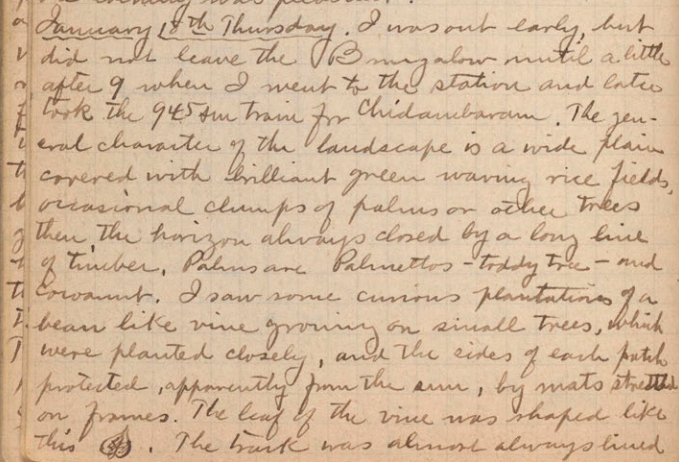 January 18th Thursday. I was out early, but
did not leave the Bungalow until a little
after 9 when I went to the station and later
took the 945 am train for Chidambaram. The gen-
eral character of the landscape is a wide plain
covered with brilliant green waving rice fields,
occasional clumps of palms or other trees
then, the horizon always closed by a long line
of timber. Palms are Palmettos - toddy tree - and
Cocoanut. I saw some curious plantations of a
bean like vine growing on small trees, which
were planted closely, and the sides of each patch
protected, apparently from the sun, by mats stretched
on frames. The leaf of the vine was shaped like
this . The track was almost always lined